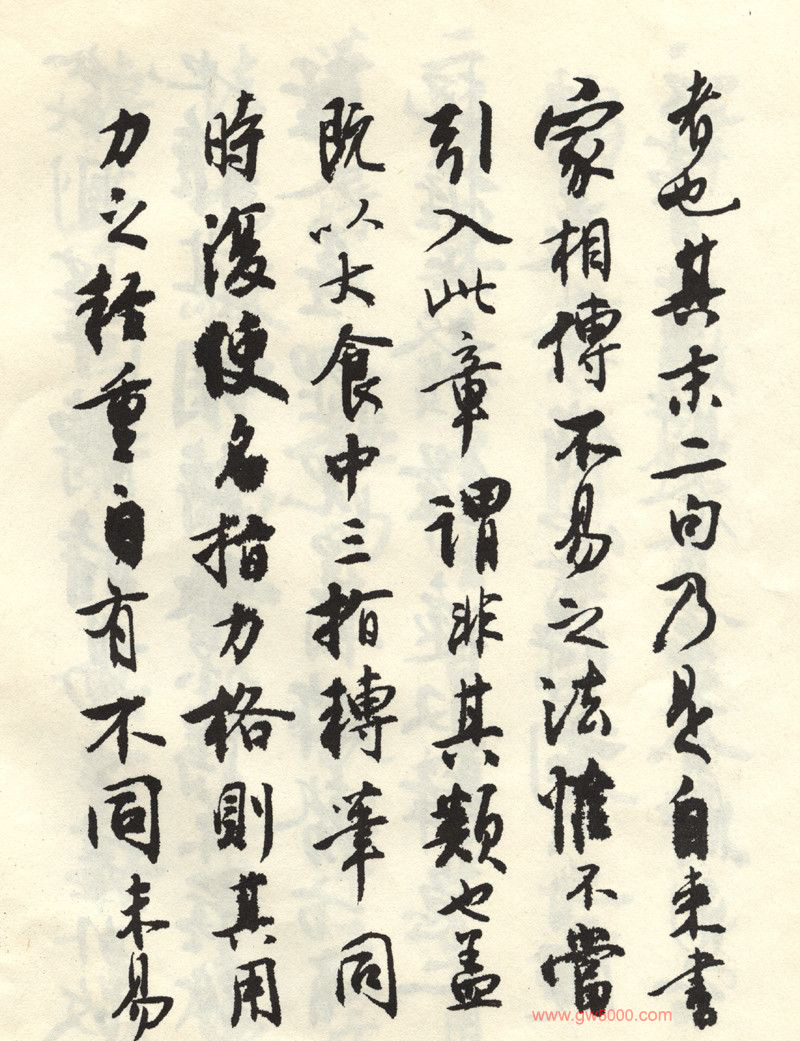 者也其末二句乃是自来書
家相傳不易之法惟不當
引入此章謂非其類也盖
既以大食中三指轉筆同
時復使名指力格則其用
力之輕重自有不同未易
www.gw5000.com